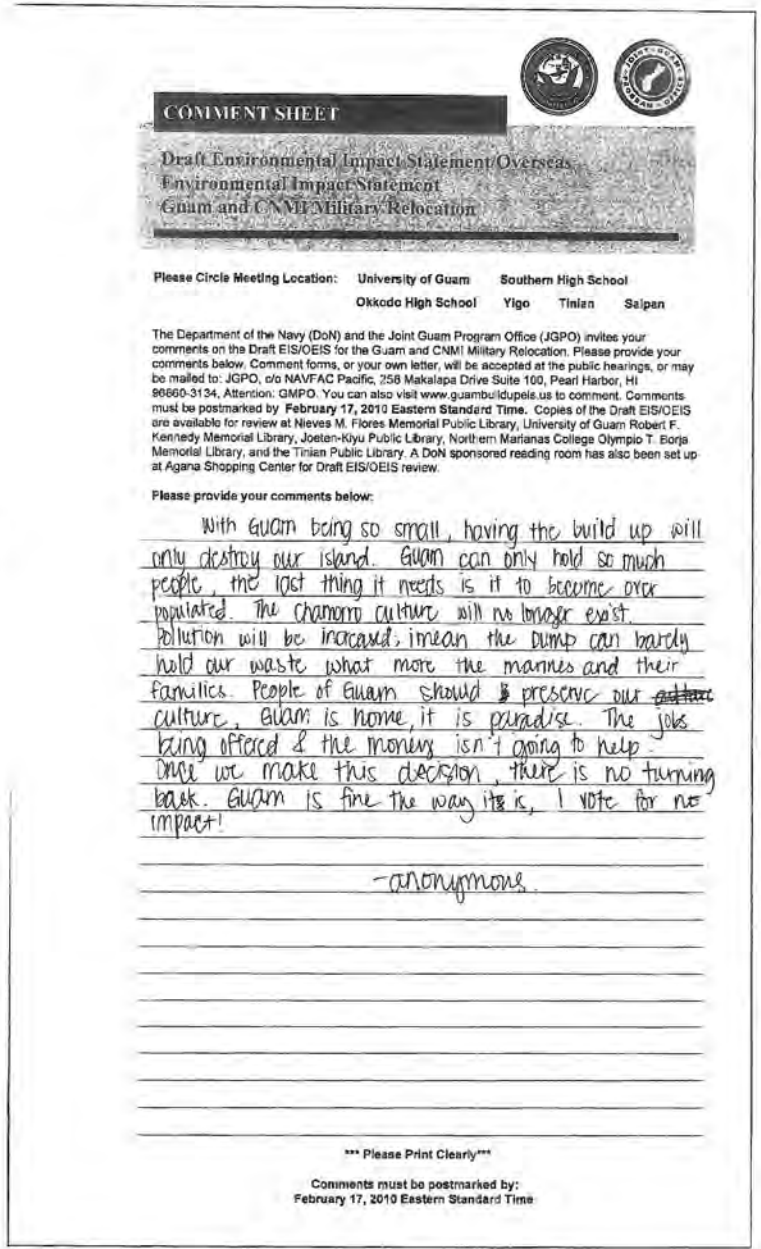 COMMENT SHEET
Draft Environmental Impact Statement/Overseas
Environmental Impact Statement
Guam and CNMI Military Relocation
Please Circle Meeting Location: University of Guam Southern High School
Okkodo High School Yigo Tinian Saipan
The Department of the Navy (DoN) and the Joint Guam Program Office (JGPO) invites your
comments on the Draft EIS/OEIS for the Guam and CNMI Military Relocation. Please provide your
comments below. Comment forms, or your own letter, will be accepted at the public hearings, or may
be mailed to: JGPO, c/o NAVFAC Pacific, 258 Makalapa Drive Suite 100, Pearl Harbor, HI
96860-3134, Attention: GMPO. You can also visit www.guambuildupeis.us to comment. Comments
must be postmarked by February 17, 2010 Eastern Standard Time. Copies of the Draft EIS/OEIS
are available for review at Nieves M. Flores Memorial Public Library, University of Guam Robert F.
Kennedy Memorial Library, Joeten-Kiyu Public Library, Northern Marianas College Olympio T. Borja
Memorial Library, and the Tinian Public Library. A DoN sponsored reading room has also been set up
at Agana Shopping Center for Draft EIS/OEIS review.
Please provide your comments below:
With Guam being so small, having the build up will
only destroy our island. Guam can only hold so much
people, the last thing it needs is it to become over
populated. The chamorro culture will no longer exist.
Pollution will be increased, imean the dump can barely
hold our waste what more the marines and their
families. People of Guam should preserve our
culture, Guam is home, it is paradise. The jobs
being offered & the moneys isn't going to help.
Once we make this decision, there is no turning
back. Guam is fine the way it is, I vote for no
impact!
-anonymous.
*** Please Print Clearly***
Comments must be postmarked by:
February 17, 2010 Eastern Standard Time